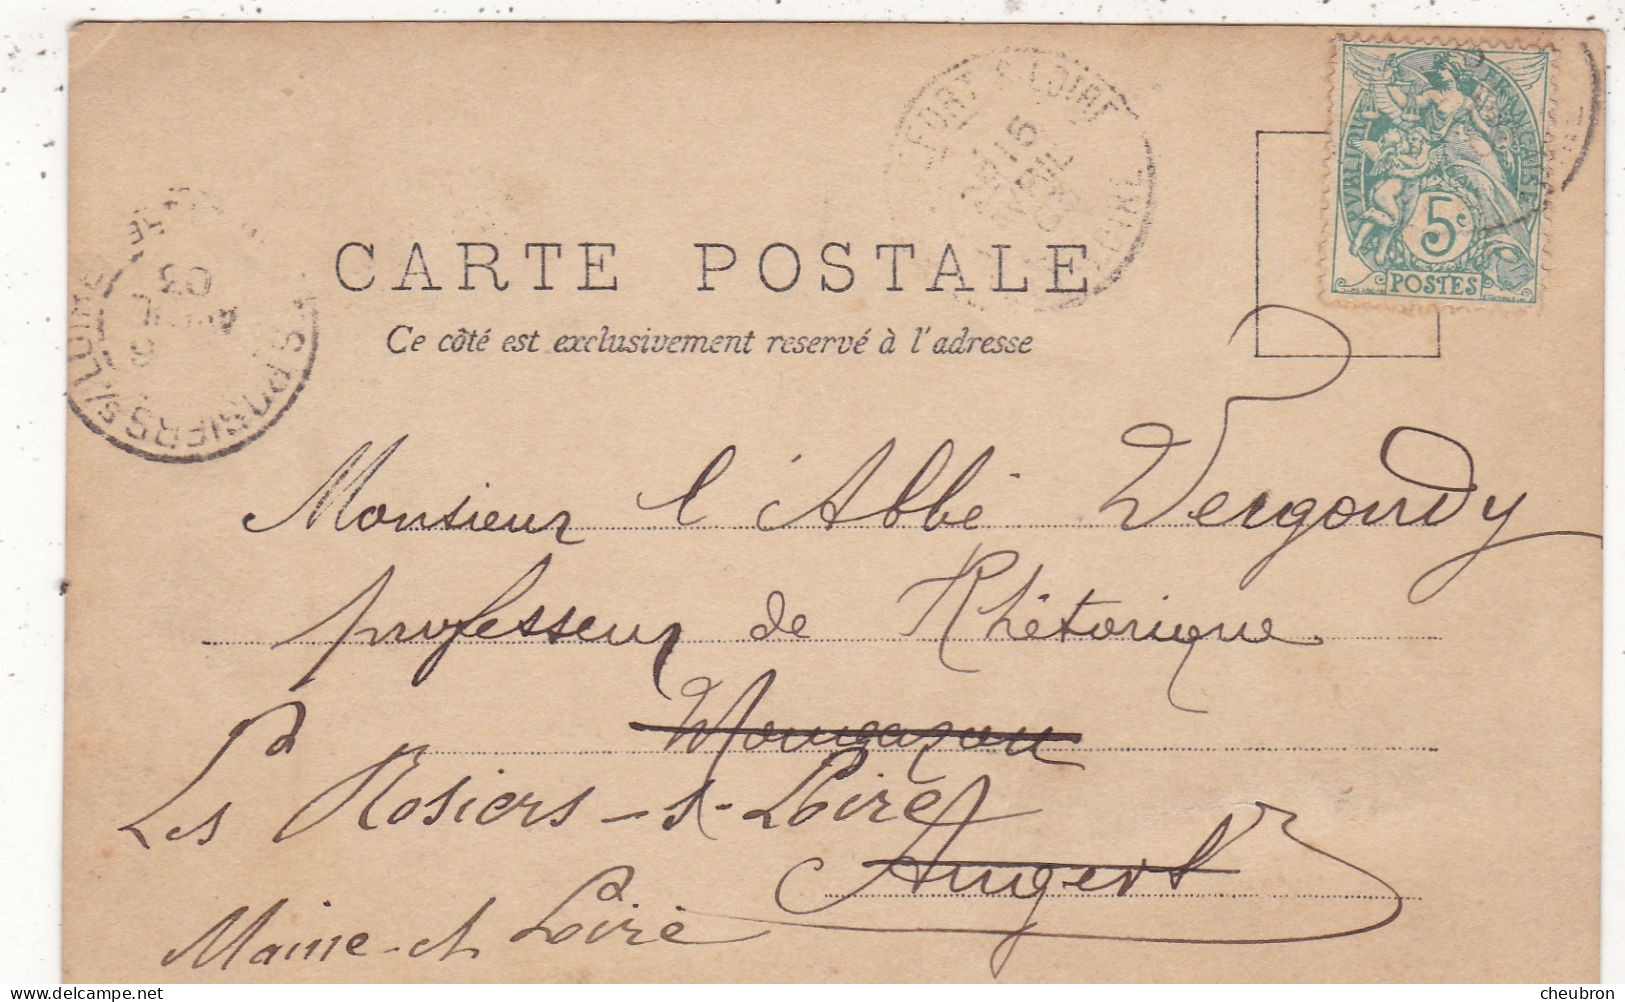 CARTE POSTALE
Ce côté est exclusivement reservé à l'adresse
RÉPUBLIQUE FRANÇAISE
5c
POSTES
15
AVRIL
03
LOIRE
ROSIERS S/ LOIRE
AVRIL
03
Monsieur l'Abbé
professeur de Rhétorique
Mongazon
Les Rosiers-s-Loire
Angers
Maine-et-Loire
© cheubron
Delcampe.net